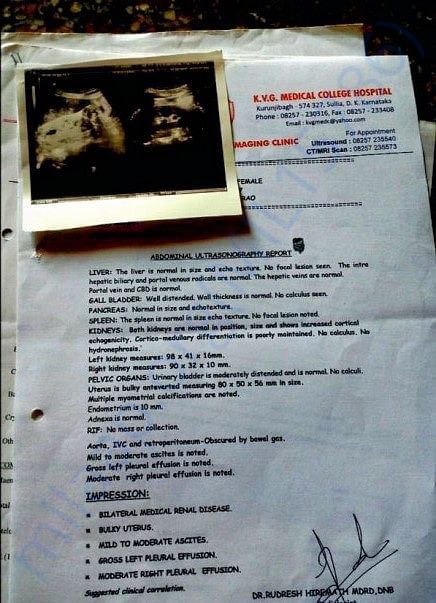 K.V.G. MEDICAL COLLEGE HOSPITAL
Kurunjibagh - 574 327, Sullia, D. K. Karnataka
Phone : 08257 - 230316, Fax : 08257 - 233408
Email : kvgmedc@yahoo.com
MAGING CLINIC
For Appointment
Ultrasound : 08257 235540
CT/MRI Scan : 08257 235573
FEMALE
RAO
ABDOMINAL ULTRASONOGRAPHY REPORT
LIVER: The liver is normal in size and echo texture. No focal lesion seen. The intra
hepatic biliary and portal venous radicals are normal. The hepatic veins are normal.
Portal vein and CBD is normal.
GALL BLADDER: Well distended. Wall thickness is normal. No calculus seen.
PANCREAS: Normal in size and echotexture.
SPLEEN: The spleen is normal in size echo texture. No focal lesion noted.
KIDNEYS: Both kidneys are normal in position, size and shows increased cortical
echogenicity. Cortico-medullary differentiation is poorly maintained. No calculus. No
hydronephrosis.
Left kidney measures: 98 x 41 x 16mm.
Right kidney measures: 90 x 32 x 10 mm.
PELVIC ORGANS: Urinary bladder is moderately distended and is normal. No calculi.
Uterus is bulky anteverted measuring 80 x 50 x 56 mm in size.
Multiple myometrial calcifications are noted.
Endometrium is 10 mm.
Adnexa is normal.
RIF: No mass or collection.
Aorta, IVC and retroperitoneum-Obscured by bowel gas.
Mild to moderate ascites is noted.
Gross left pleural effusion is noted.
Moderate right pleural effusion is noted.
IMPRESSION:
BILATERAL MEDICAL RENAL DISEASE.
BULKY UTERUS.
MILD TO MODERATE ASCITES.
GROSS LEFT PLEURAL EFFUSION.
MODERATE RIGHT PLEURAL EFFUSION.
Suggested clinical correlation.
DR.RUDRESH HIREMATH MDRD,DNB